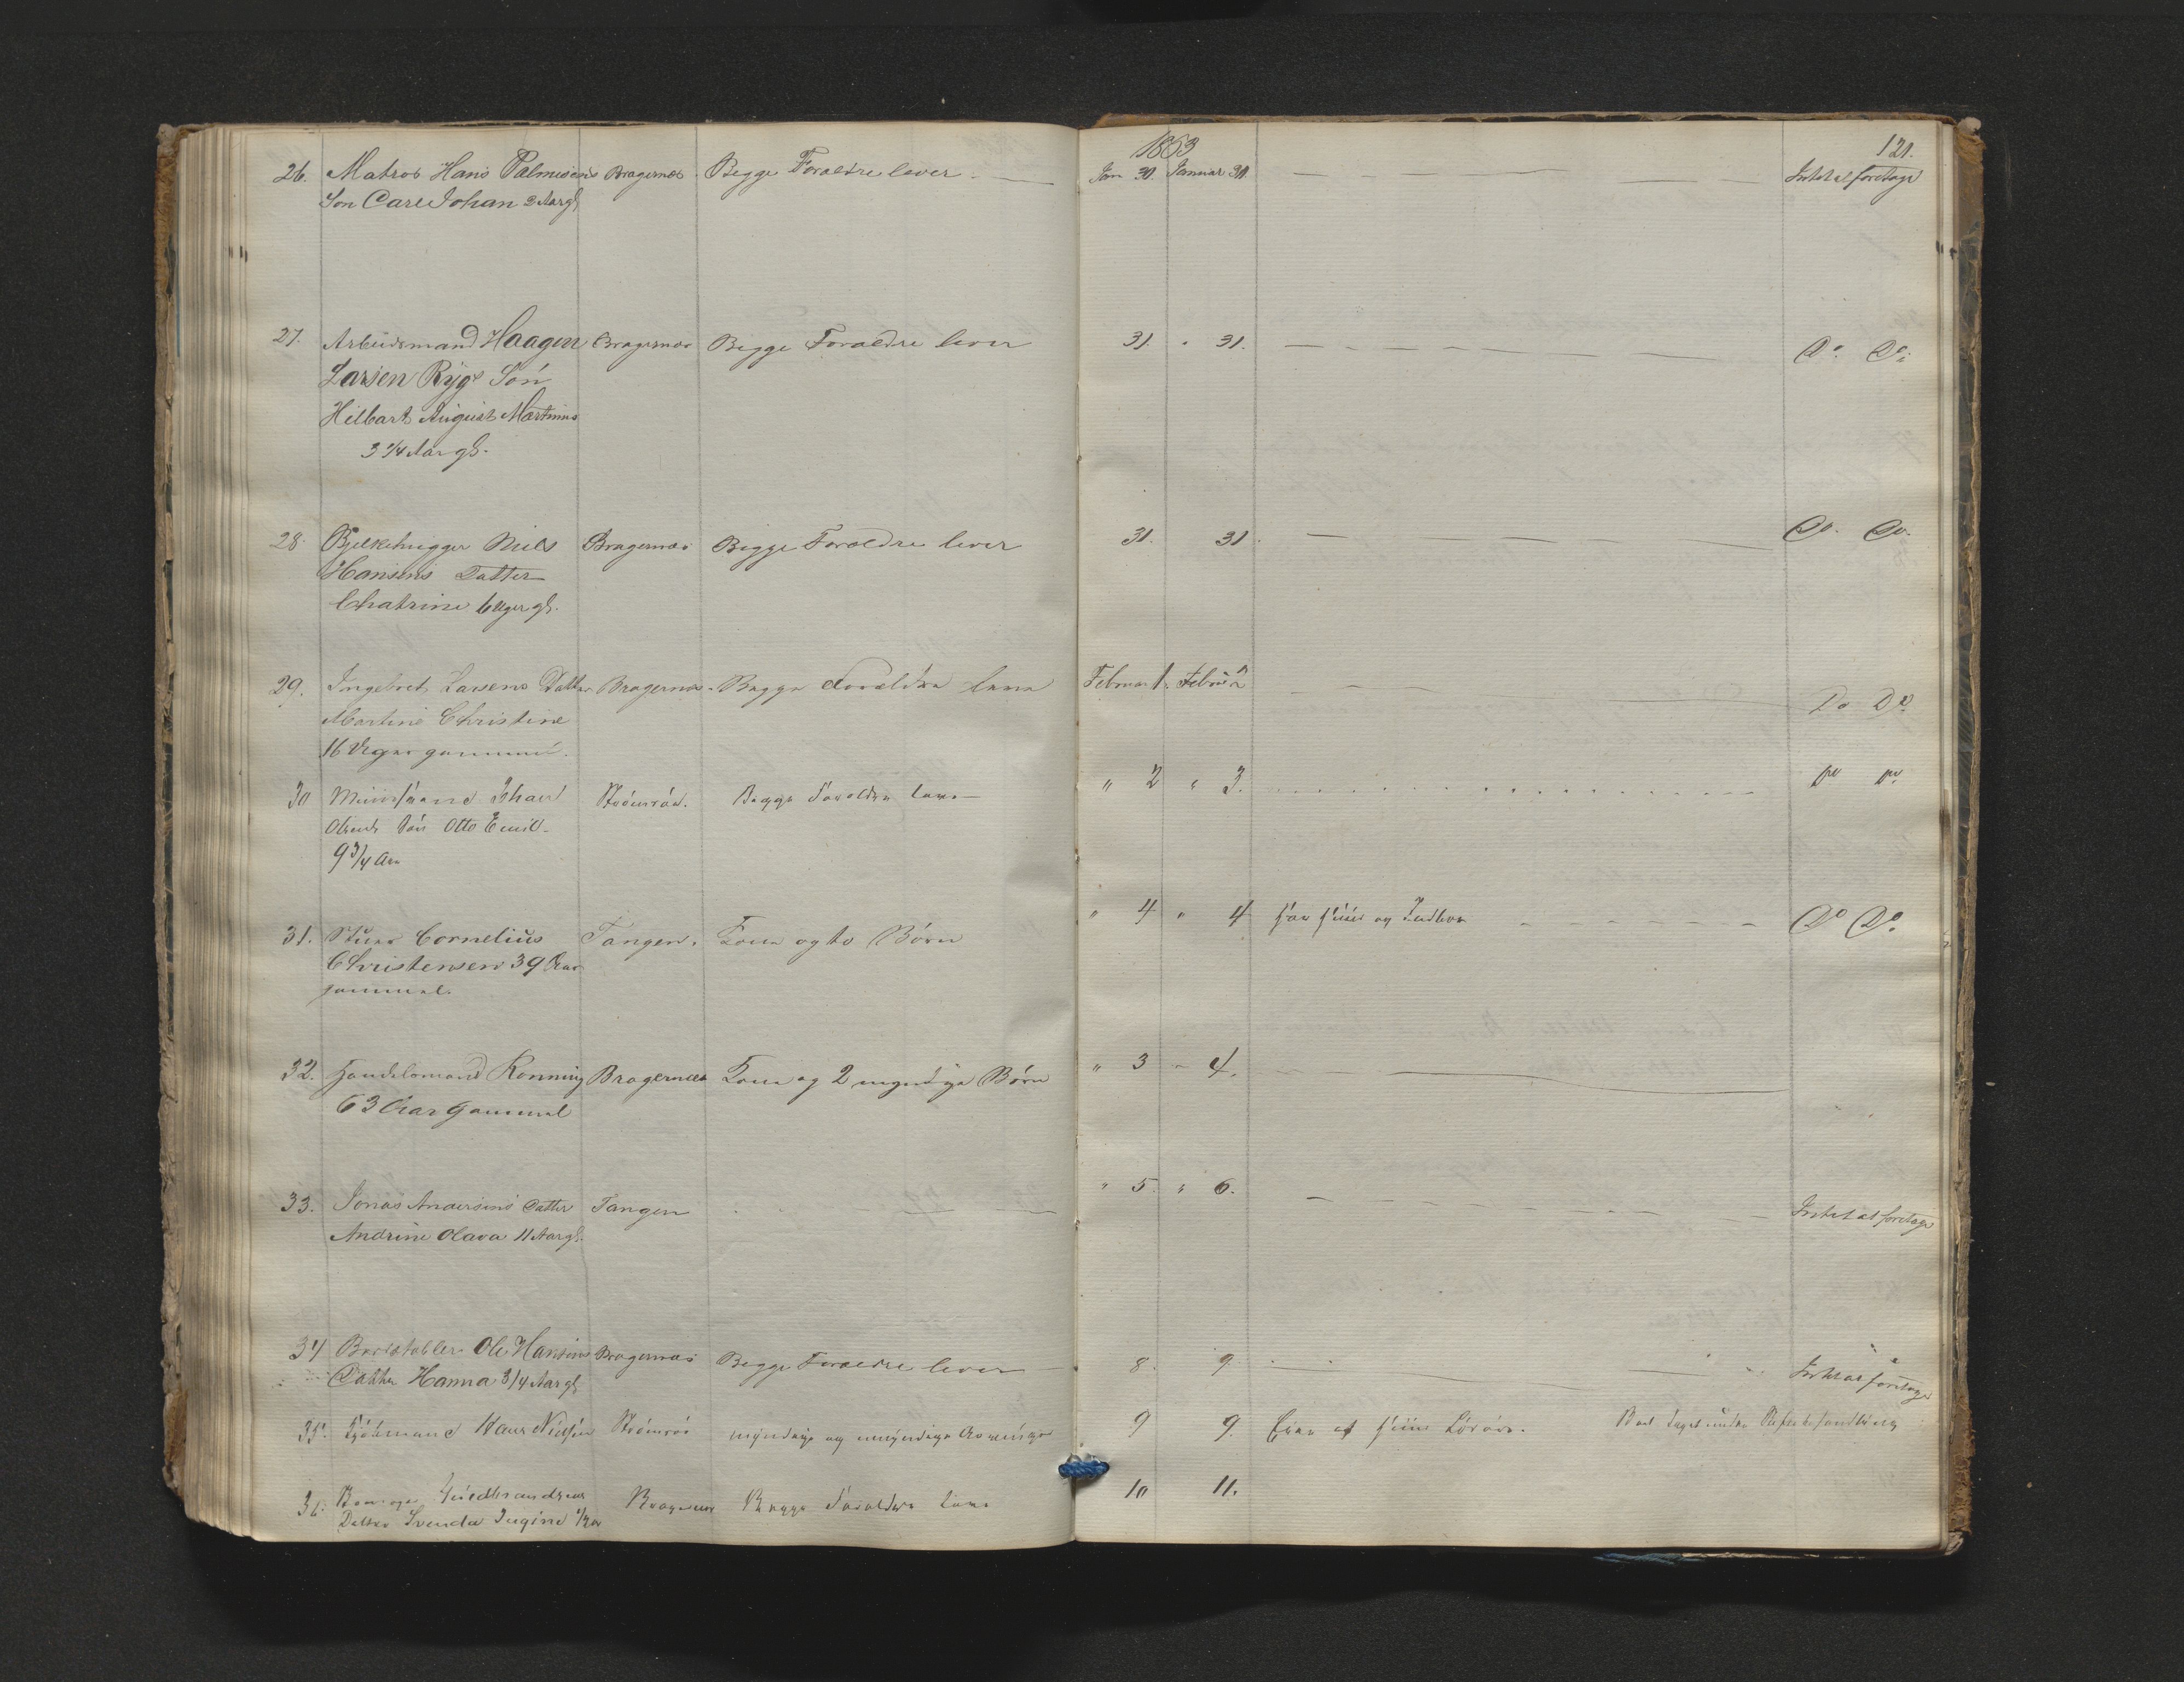 1863
121.
26. Matros Hans Palmesens Bragernæs Begge Forældre lever Jan 30. Januar 31. Intet at foretage
Søn Carl Johan 2 Aar gl
27. Arbeidsmand Haagen Bragernæs Begge Forældre lever 31. " 31. Do. Do.
Larsen Rygs Søn
Hilbart August Martinius
3 1/4 Aar gl.
28. Bjelkehugger Niels Bragernæs Begge Forældre lever 31. 31 Do. Do.
Hansens Datter
Chatrine 6 Uger gl.
29. Ingebret Larsens Datter Bragernæs. Begge Forældre leve Februar 1. Do Do.
Martine Christine
16 Uger gammel.
30 Johan Strømsøe. Begge Forældre leve " 2 " 3. Do Do.
Olsens Søn Otto Emil
9 3/4 Aar
31. Cornelius Tangen. Kone og to Børn " 4 " 4 har Huus og Do Do.
Christensen 39 Aar
gammel.
32. Handelsmand Rønning Bragernæs Kone og 2 myndige Børn " 3 " 4.
63 Aar gammel
33. Jonas Andersens Datter Tangen " 5. " 6. Intet at foretage
Andrine Olava 11 Aar gl.
34 Bordstabler Ole Hansens Bragernæs Begge Forældre lever 8. 9. Intet at foretage
Datter Hanna 3/4 Aar gl
35. Hans Nielsen Strømsøe myndige og umyndige Arvinger 9 9. Boet taget under
36. Gudbrandsens Bragernæs Begge Forældre leve 10 11.
Datter